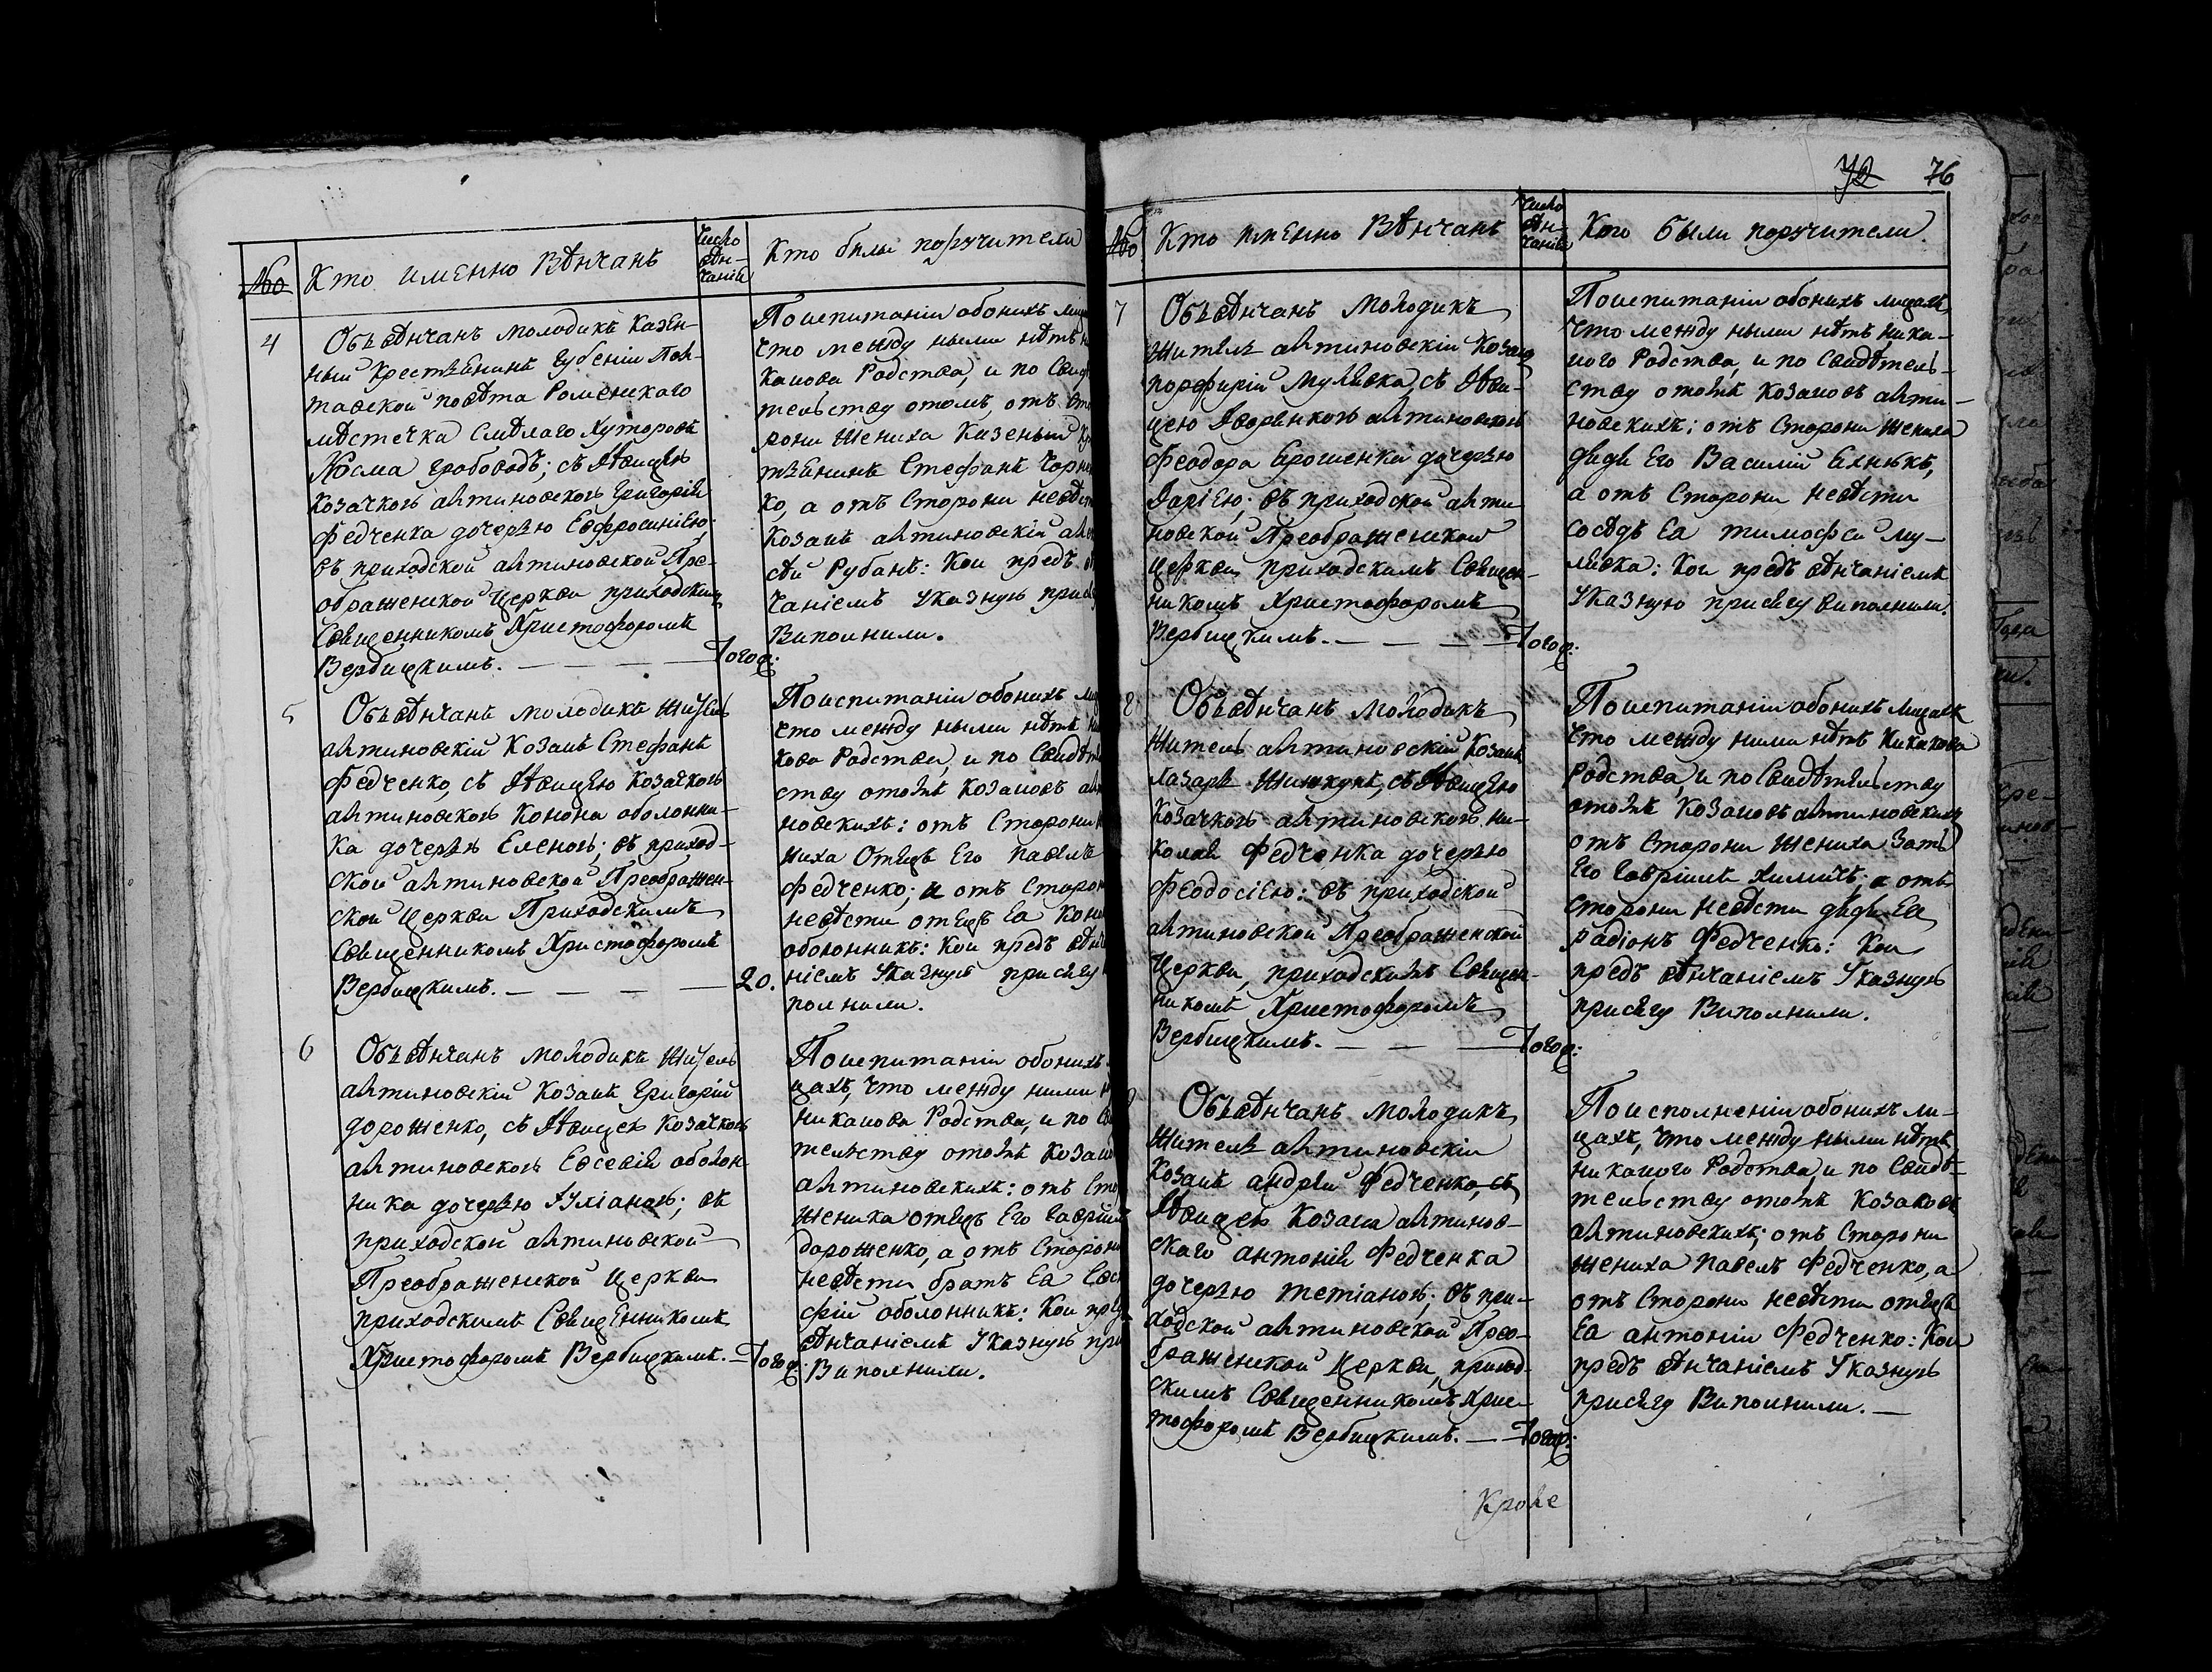 № Кто именно вѣнчанъ
Число
вѣн-
чанія
Кто были поручители
4
Обвѣнчанъ молодикъ казен-
ный крестъянинъ губеніи Пол-
тавской повѣта Роменскаго
мѣстечка Смѣлаго Хуторовъ
Косма Грабовадъ; съ дѣвицею
козачкою алтиновскою Григорія
Федченка дочерью Евфросиніею;
въ приходской алтиновской Пре-
ображенской церкви приходскимъ
священникомъ Христофоромъ
Вербицкимъ. — — — — Того ф:
Поиспитаніи обоихъ лиц
что между ными нѣтъ н
какова родства, и по свид
тельству отомъ, отъ сто
рони жениха казеный кр
тъянинъ Стефанъ Чорн
ко, а отъ сторони невѣст
козакъ алтиновскій але
сѣй Рубанъ: кои предъ в
чаніемъ указную прися
виполнили.
5
Обвѣнчанъ молодикъ житель
алтиновскій козакъ Стефанъ
Федченко, съ дѣвицею козачкою
алтиновскою Конона оболонни-
ка дочерью Еленою; въ приход-
ской алтиновской Преображен-
ской церкви Приходскимъ
священникомъ Христофоромъ
Вербицкимъ. — — — — 20.
Поиспитаніи обоихъ ли
что между ными нѣтъ ни
кова родства, и по свидѣт
ству отомъ козаковъ ал
новскихъ: отъ сторони
ниха Отецъ его Павелъ
Федченко; и отъ сторон
невѣсти отецъ еа Коно
оболонникъ: кои предъ вѣнч
ніемъ указную присягу
полнили.
6
Обвѣнчанъ молодикъ житель
алтиновскій козакъ Григорій
дорошенко, съ дѣвицею козачкою
алтиновскою Евсевія оболон
ника дочерью Іуліаною; въ
приходской алтиновской
Преображенской церкви
приходскимъ священникомъ
Христофоромъ Вербицкимъ. — Того ф:
Поиспитаніи обоихъ
цахъ, что между ними н
никакова родства, и по св
тельству отомъ козако
алтиновскихъ: отъ сто
жениха отецъ его Гавріил
дорошенко, а отъ сторони
невѣсти братъ еа
фій оболонникъ: кои пред
вѣнчаніемъ указную при
виполнили.
72 76
№ Кто именно вѣнчанъ
Число
вѣн-
чанія
Кого были поручители.
7
Обвѣнчанъ молодикъ
житель алтиновскій козакъ
порфирій Мулявка, съ дѣви-
цею дворянкою алтиновскою
Феодора Ерошенка дочерью
Даріею; въ приходской алти
новской Преображенской
церкви, приходскимъ священ-
никомъ Христофоромъ
Вербицкимъ. — — — Того ф:
Поиспитаніи обоихъ лицахъ,
что между ными нѣтъ ника-
кого родства, и по свидѣтель-
ству отомъ козаковъ алти-
новскихъ: отъ сторони жениха
дядя его Василій
а отъ сторони невѣсти
сосѣдъ еа тимофей Му-
лявка: кои предъ вѣнчаніемъ
указную присягу виполнили.
8
Обвѣнчанъ молодикъ
житель алтиновскій козакъ
Лазаръ Шишкунъ, съ дѣвицею
козачкою алтиновскою ни-
колая Федченка дочерью
Феодосіею: въ приходской
алтиновской Преображенской
церкви, приходскимъ священ-
никомъ Христофоромъ
Вербицкимъ. — — — Того ф:
Поиспитаніи обоихъ лицахъ
что между ними нѣтъ никакова
родства, и по свидѣтельству
отомъ козаковъ алтиновскихъ
отъ сторони жениха зять
его Гавріилъ а отъ
сторони невѣсти дядя еа
радіонъ Федченко: кои
предъ вѣнчаніемъ указную
присягу виполнили.
Обвѣнчанъ молодикъ
житель алтиновскій
козакъ андрей Федченко, съ
дѣвицею козака алтинов-
скаго антонія Федченка
дочерью тетіаною; въ при-
ходской алтиновской Прео-
браженской церкви, приход-
скимъ священникомъ Хрис-
тофоромъ Вербицкимъ. — Того ф:
Поисполненіи обоихъ ли-
цахъ, что между ными нѣтъ
никакого родства, и по свидѣ-
тельству отомъ козаковъ
алтиновскихъ; отъ сторони
жениха Павелъ Федченко, а
отъ сторони невѣсти отецъ
еа антоній Федченко: кои
предъ вѣнчаніемъ указную
присягу виполнили. —